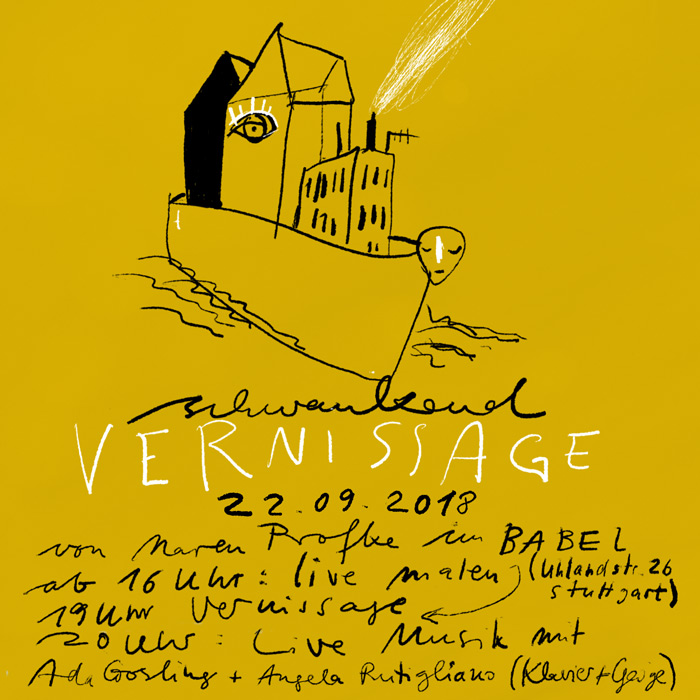 schwankend
VERNISSAGE
22.09.2018
von Maren Profke im BABEL
(Uhlandstr. 26
Stuttgart)
ab 16 Uhr: live malen
19 Uhr Vernissage
20 Uhr: Live Musik mit
Ada Gosling + Angela Rutigliano (Klavier + Geige)